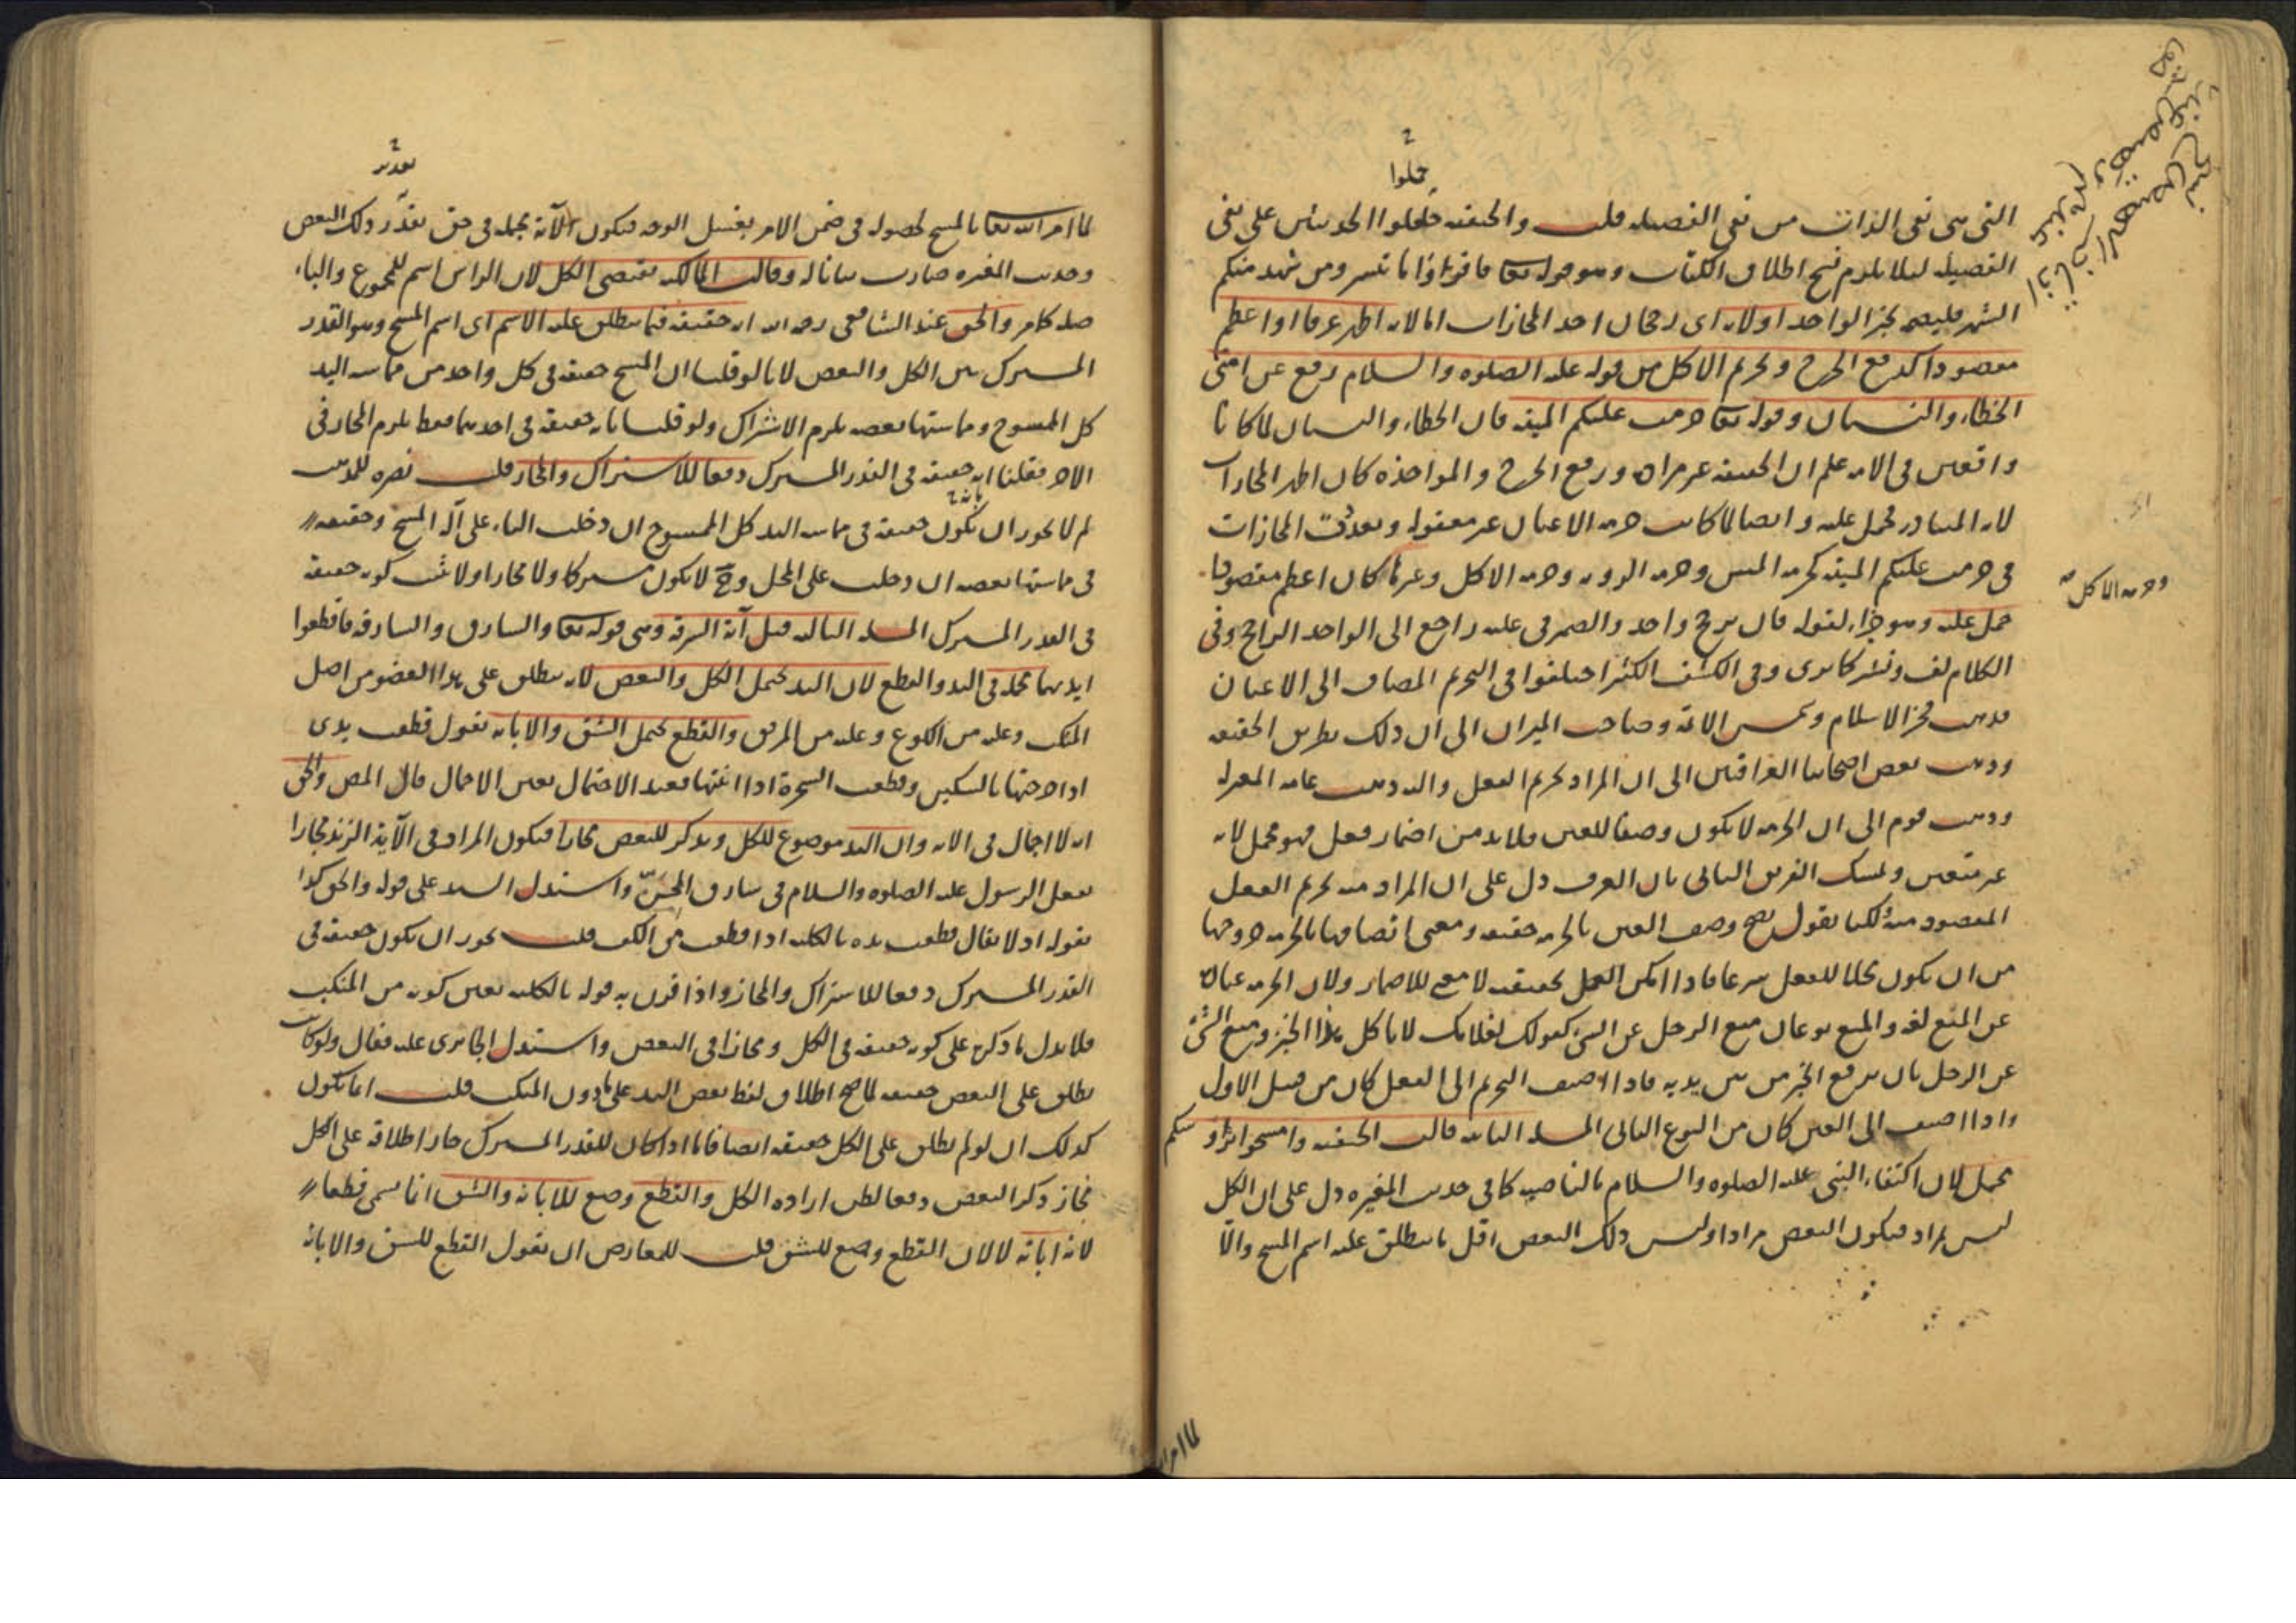 حملوا
التى هى نفى الذات من نفى الفضيله قلت والحنفيه حملوا الحديثين على نفى
الفضيله ليلا يلزم نسخ اطلاق الكتاب وهو قوله تعا فاقرؤا ما تيسر ومن شهد منكم
الشهر فليصمه بجز الواحد اولان اى رجحان احد المجازات اما لانه اظهر عرفا او اعظم
مقصودا كرفع الحرج وتحريم الاكل من قوله عليه الصلوه والسلام رفع عن امتى
الخطاء والنسيان وقوله تعا حرمت عليكم الميته فان الخطاء والنسيان لما كانا
واقعين فى الامه علم ان الحقيقه غير مراده ورفع الحرج والمواخذه كان اظهر المجازات
لانه المتبادر فحمل عليه وايضا لما كانت حرمه الاعيان غير معقوله وتعددت المجازات
فى حرمت عليكم الميته كحرمه المس وحرمه الرويه وحرمه الاكل وغيرها كان اعظم مقصودا
وحرمه الاكل
حمل عليه وهو جزاء لقوله فان ترجح واحد والضمير فى عليه راجع الى الواحد الراجح وفى
الكلام لف ونشر كما ترى وفى الكشف الكثير اختلفوا فى التحريم المضاف الى الاعيان
فذهب فخر الاسلام وشمس الائمه وصاحب الميزان الى ان ذلك بطريق الحقيقه
وذهب بعض اصحابنا العراقيين الى ان المراد تحريم الفعل واليه ذهب عامه المعتزله
وذهب قوم الى ان الحرمه لا يكون وصفا للعين فلا بد من اضمار فعل فهو مجمل لانه
غير متعين وتمسك الفريق الثانى بان العرف دل على ان المراد منه تحريم الفعل
المقصود منه لكنا نقول يصح وصف العين بالحرمه حقيقه ومعنى اتصافها بالحرمه خروجها
من ان يكون محلا للفعل شرعا فاذا امكن العمل بحقيقته لا معنى للاضمار ولان الحرمه عباره
عن المنع لغه والمنع نوعان منع الرجل عن الشئ كقولك لغلامك لا تاكل هذا الخبز ومنع الشئ
عن الرجل بان يرفع الخبز من بين يديه فاذا اضيف التحريم الى الفعل كان من قبيل الاول
واذا اضيف الى العين كان من النوع الثانى المسله الثانيه قالت الحنفيه وامسحوا برؤسكم
مجمل لان اكتفاء النبى عليه الصلوه والسلام بالناصيه كما فى حديث المغيره دل على ان الكل
ليس بمراد فيكون البعض مرادا وليس ذلك البعض اقل ما ينطلق عليه اسم المسح والا
لما امر الله
لما امر الله تعا بالمسح لحصوله فى ضمن الامر بغسل الوجه فيكون الآية مجمله فى حق تقدر ذلك البعض
وحديث المغيره صارت بيانا له وقالت المالكيه يقتضى الكل لان الراس اسم للمجموع والباء
صله كما مر والحق عند الشافعى رحمه الله انه حقيقه فيما ينطلق عليه الاسم اى اسم المسح وهو القدر
المشترك بين الكل والبعض لانا لو قلنا ان المسح حقيقه فى كل واحد من مماسه اليد
كل الممسوح ومماستها بعضه يلزم الاشتراك ولو قلنا بانه حقيقه فى احديهما فقط يلزم المجاز فى
الاخر فقلنا انه حقيقه فى القدر المشترك دفعا للاشتراك والمجاز قلت نصره للمذهب
لم لا يجوز ان يكون حقيقه فى مماسه اليد كل الممسوح ان دخلت الباء على آله المسح وحقيقه
فى مماستها بعضه ان دخلت على المحل وح لا يكون مشتركا ولا مجازا ولا ثبت كونه حقيقه
فى القدر المشترك المسله الثالثه قيل آية السرقه وهى قوله تعا والسارق والسارقه فاقطعوا
ايديهما مجمله فى اليد والقطع لان اليد يحتمل الكل والبعض لانه يطلق على هذا العضو من اصل
المنكب وعليه من الكوع وعليه من المرفق والقطع يحتمل الشق والابانه تقول قطعت يدى
اذا جرحتها بالسكين وقطعت الشجرة اذا ابنتها فعند الاحتمال تعين الاجمال قال المص والحق
انه لا اجمال فى الايه وان اليد موضوع للكل ويذكر للبعض مجازا فيكون المراد فى الآية الزند مجازا
بفعل الرسول عليه الصلوه والسلام فى سارق المجن واستدل السيد على قوله والحق كذا
بقوله اذ لا يقال قطعت يده بالكليه اذا قطعت من الكف قلت يجوز ان يكون حقيقه فى
القدر المشترك دفعا للاشتراك والمجاز واذا قرن به قوله بالكليه تعين كونه من المنكب
فلا يدل ما ذكره على كونه حقيقه فى الكل ومجازا فى البعض واستدل الجابردى عليه فقال ولو كانت
يطلق على البعض حقيقه لما صح اطلاق لفظ بعض اليد على ما دون المنكب قلت انما يكون
كذلك ان لو لم يطلق على الكل حقيقه ايضا فاما اذا كان للقدر المشترك جاز اطلاقه على الكل
فجاز ذكر البعض دفعا لظن اراده الكل والقطع وضع للابانه والشق انما سمى قطعا
لانه ابانه لا لان القطع وضع للشق قلت للمعارض ان يقول القطع للشق والابانه